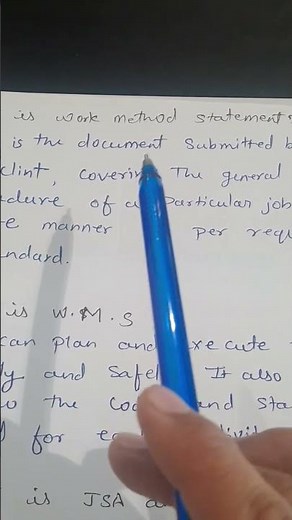 is work method statement
is the document Submitted b
clint, coverin The general
dure of a Particular job
e manner per requ
ndard.
is W.M.S
can plan and execute
ly and Safel It also
the Co and Sta
for
is JSA a